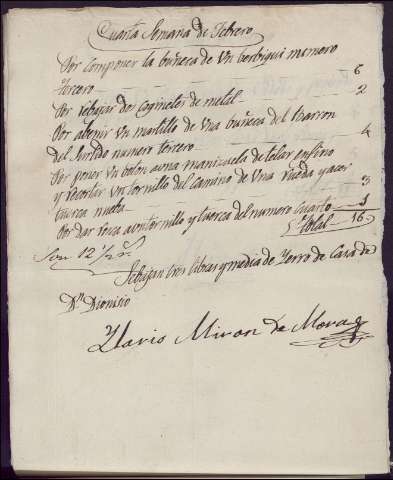 Cuarta Semana de Febrero
Por componer la buñeca de Un berbiqui numero
tercero 6
Por rebajar dos coginetes de metal 2
Por abrir Un martillo de Una buñeca del barron
del Surtido numero tercero 4
Por poner Un boton a una manizuela de telar en fino
y recortar Un tornillo del camino de Una rueda y acer
tuerca nueba 3
Por dar rosca a un tornillo y tuerca del numero Cuarto 1
Total 16
Son 12 1/2 rs
Se bajan tres libras y media de Yerro de Casa de
Dn Dionisio
Ylario Miron de Mora